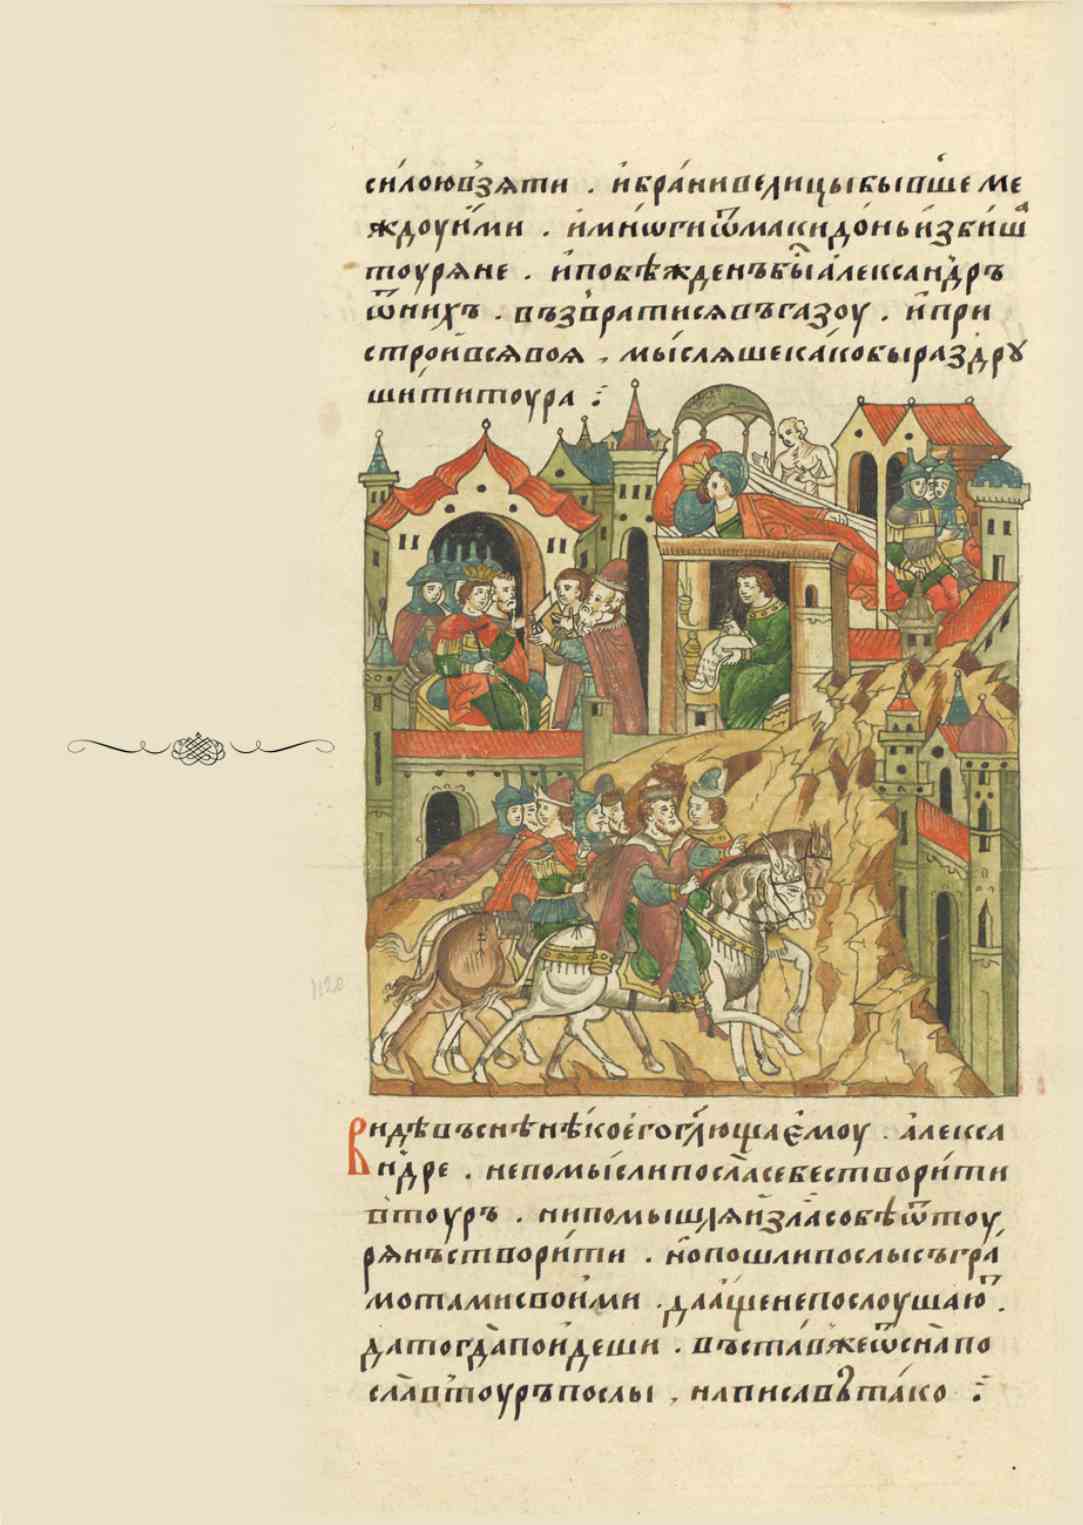 си́лоювзѧти . и҆бра́нивелицыбывшеме
ждоуи́ми . и҆мно́гиѿмакидо́ньи҆зби́ша
тоурѧне . и҆побѣжденъбы́а҆лекса́ндръ
ѿнихъ . възвратисѧвъгазоу . и҆при
строи́всѧ́воѧ , мы́слѧшека́кобыраздрꙋ
ши́титоура ⁘
Видѣвъснѣнѣ́коегогл҃ющаємоу . а҆лекса
ндре . непомы́слипосла́себестворити
втоуръ . нипомышлѧи́зласобѣѿтоу
рѧнъстворити . но́пошлипослысъгра
мотамисвои́ми . даа҆́щенепослоушаю҆т .
датогда̀поидеши . въста́вжеѿсна̀по
сла̀втоуръпослы , написавъ̀та́ко ⁘
1120